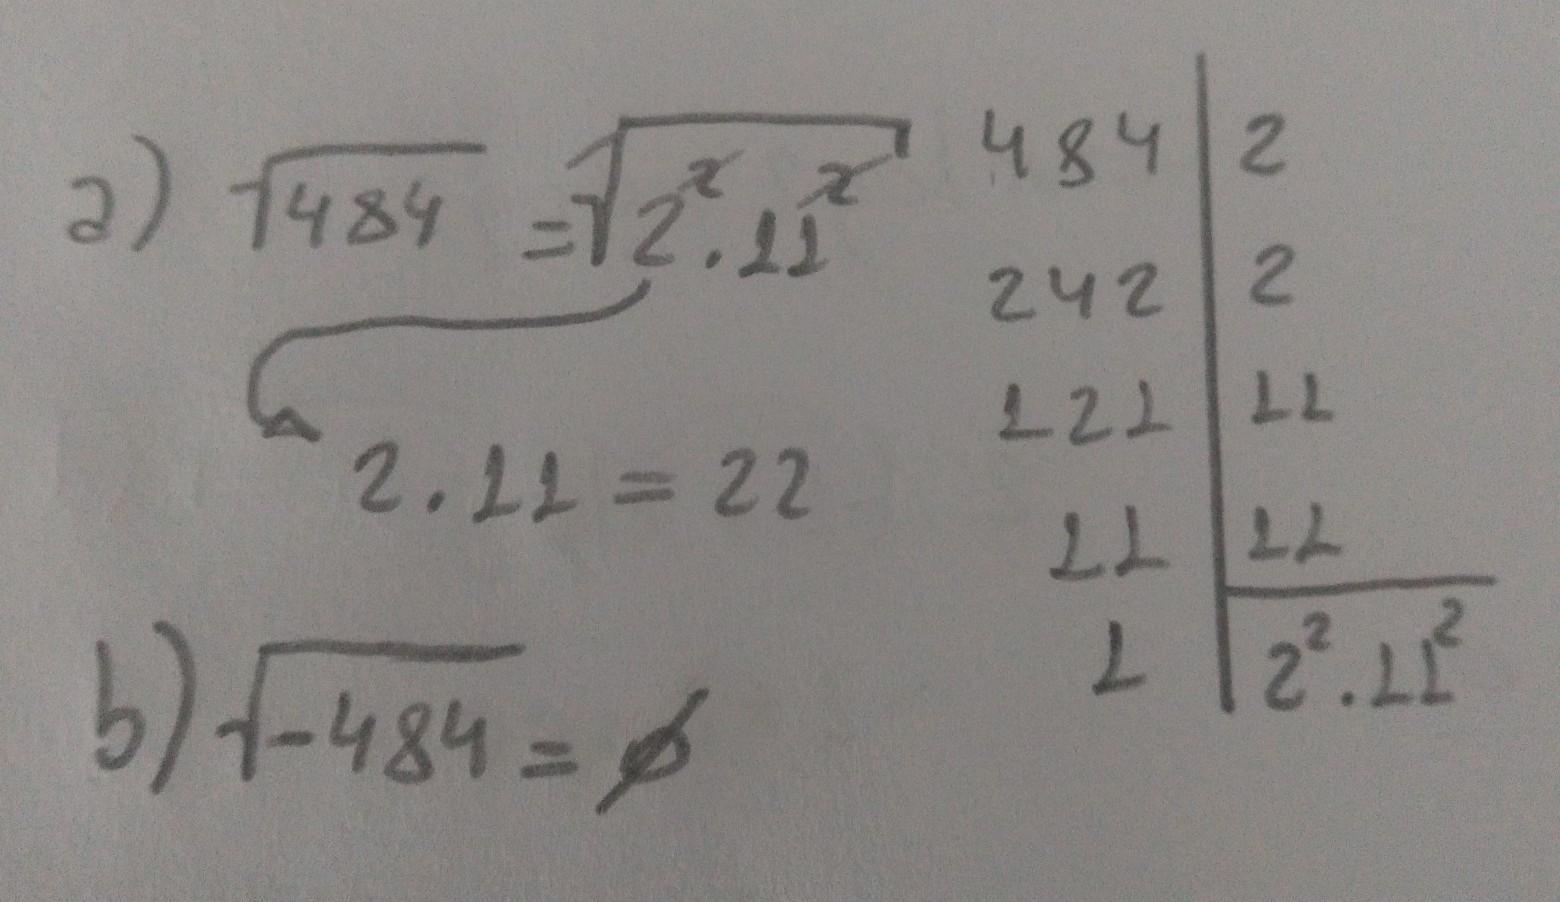 a) √484 = √2² . 11²
2 . 11 = 22
484 | 2
242 | 2
121 | 11
11 | 11
1 | 2² . 11²
b) √-484 = ∅